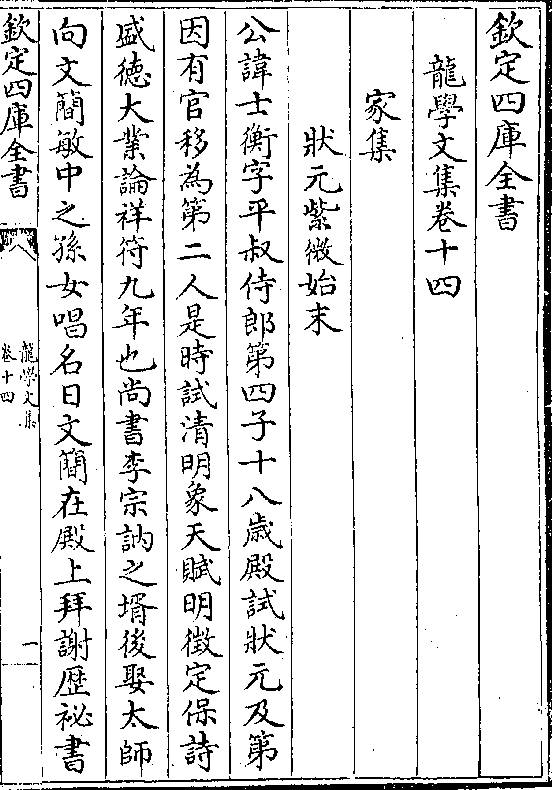 欽定四庫全書
龍學文集卷十四
家集
狀元紫微始末
公諱士衡字平叔侍郎第四子十八歲殿試狀元及第
因有官移為第二人是時試清明象天賦明徵定保詩
盛德大業論祥符九年也尚書李宗訥之壻後娶太師
向文簡敏中之孫女唱名日文簡在殿上拜謝歷祕書
欽定四庫全書
龍學文集
卷十四
一